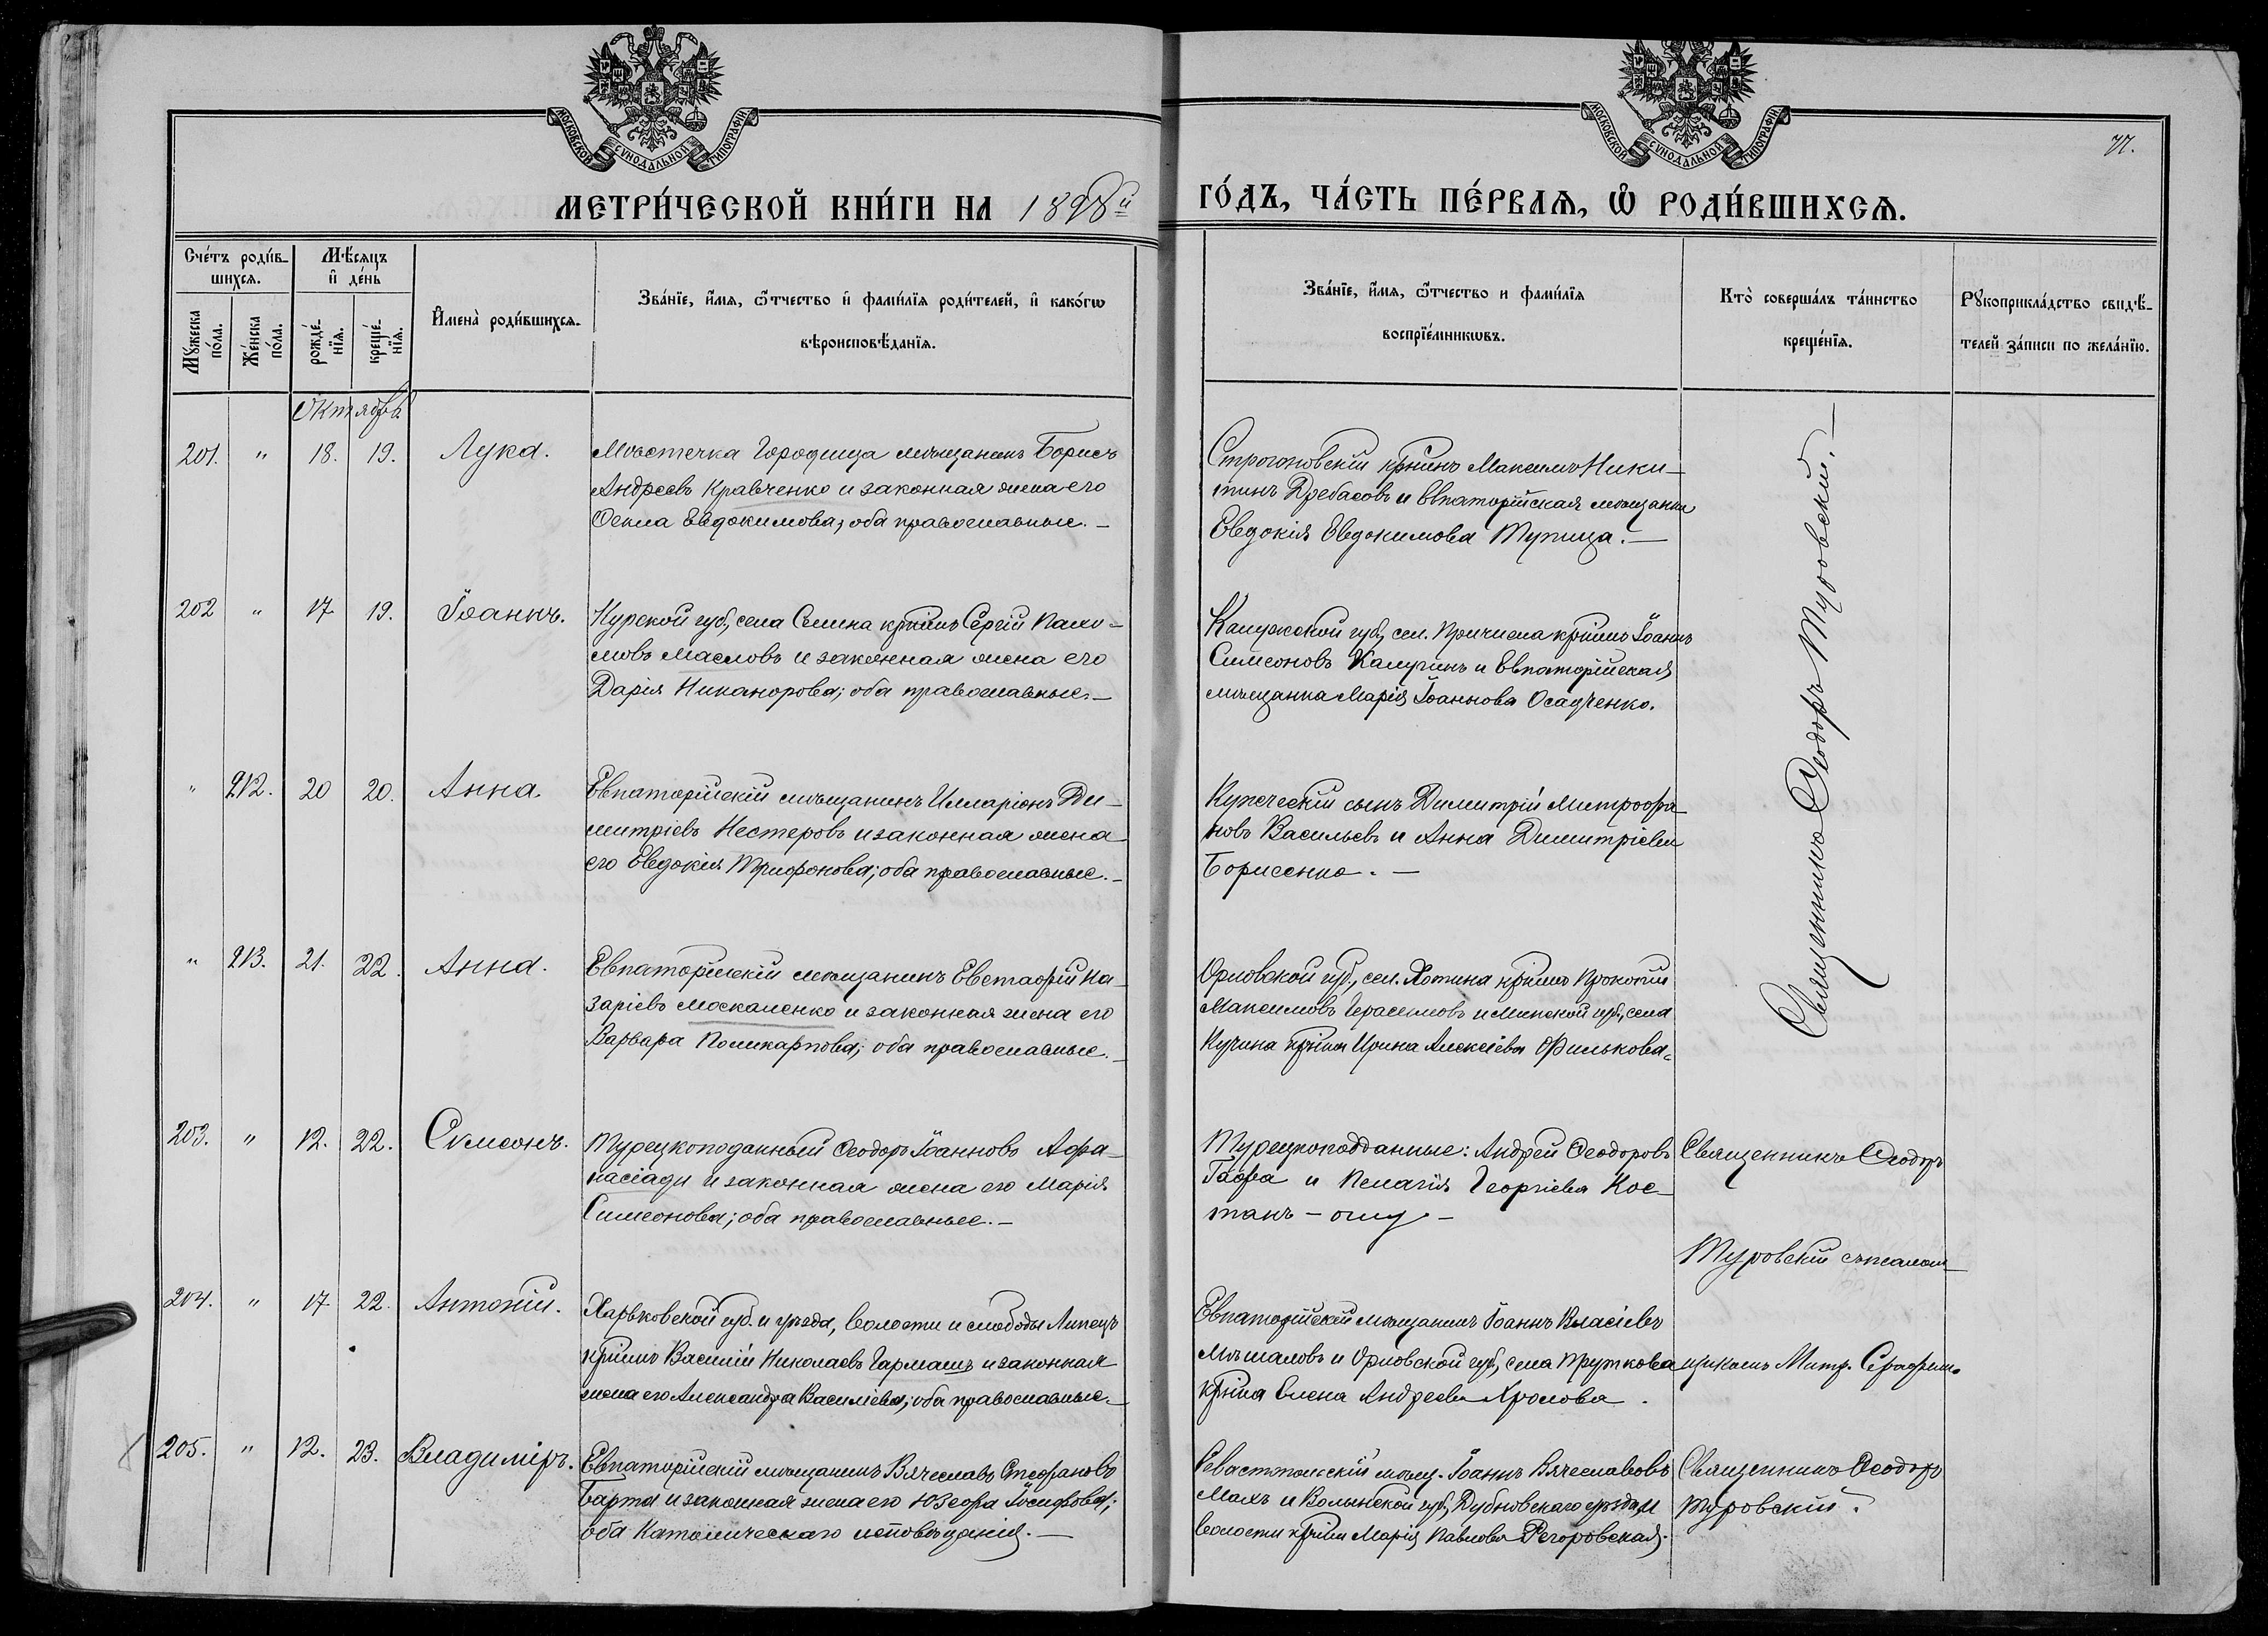 МОСКОВСКОЙ СѴНОДАЛЬНОЙ ТИПОГРАФІИ
МОСКОВСКОЙ СѴНОДАЛЬНОЙ ТИПОГРАФІИ
77.
МЕТРИ́ЧЕСКОЙ КНИ́ГИ НА 1898й ГО́ДЪ, ЧА́СТЬ ПЕ́РВАѦ, Ѡ РОДИ́ВШИХСѦ.
Сче́тъ роди́в-
шихсѧ.
Мꙋ́жеска по́ла.
Же́нска по́ла.
Мѣ́сѧцъ
и҆ де́нь
рожде́-
нїѧ.
креще́-
нїѧ.
И҆мена̀ роди́вшихсѧ.
Зва́нїе, и҆́мѧ, ѻ҆́тчество и҆ фами́лїѧ роди́телей, и҆ како́гѡ
вѣроисповѣ́данїѧ.
Зва́нїе, и҆́мѧ, ѻ҆́тчество и фами́лїѧ
воспрїе́мникѡвъ.
Кто̀ соверша́лъ та́инство
креще́нїѧ.
Рꙋкоприкла́дство свидѣ́-
телей за́писи по жела́нїю.
Октябрь
201. " 18. 19. Лука.
Мѣстечка Городища мѣщанинъ Борисъ
Андреевъ Кравченко и законная жена его
Ѳекла Евдокимова; оба православные.-
Строгоновскій крнинъ Максимъ Ники-
тинъ Дребасовъ и Евпаторійская мѣщанка
Евдокія Евдокимова Тупица.-
Священникъ Ѳеодоръ Туровскій.-
202 " 17 19. Іоаннъ.
Курской губ, села Сѣлина крнинъ Сергій Пахо-
мовъ Масловъ и законная жена его
Дарія Никанорова; оба православные.-
Калужской губ, сел. крнинъ Іоаннъ
Симеоновъ Калугинъ и Евпаторійская
мѣщанка Марія Іоаннова Осадченко.
" 212. 20 20. Анна.
Евпаторійскій мѣщанинъ Илларіонъ Ди-
митріевъ Нестеровъ и законная жена
его Евдокія Трифонова; оба православные.-
Купеческій сынъ Димитрій Митрофа-
новъ Васильевъ и Анна Димитріева
Борисенко.-
" 213. 21. 22. Анна.
Евпаторійскій мѣщанинъ Евстафій На-
заріевъ Москаленко и законная жена его
Варвара Поликарпова; оба православные.-
Орловской губ., сел. Хотина крнинъ Прокопій
Максимовъ Герасимовъ и Минской губ, села
Кучина крнка Ирина Алексіева Филькова.
203. " 12. 22. Симеонъ.
Турецкоподанный Ѳеодоръ Іоанновъ Афа-
насіади и законная жена его Марія
Симеонова; оба православные.-
Турецкоподданные: Андрей Ѳеодоровъ
Гафа и Пелагія Георгіева Кос-
танъ-оглу-
Священникъ Ѳеодоръ
Туровскій съ псалом-
204. " 17 22. Антоній.
Харьковской губ. и уѣзда, волости и слободы Липецъ
крнинъ Василій Николаевъ Гармашъ и законная
жена его Александра Василіева; оба православные.-
Евпаторійскій мѣщанинъ Іоаннъ Власіевъ
Мѣшаловъ и Орловской губ, села Пруткова
крнка Елена Андреева Хролова.
щикомъ Митр. Серафим.
205. " 12. 23. Владиміръ.
Евпаторійскій мѣщанинъ Вячеславъ Стефановъ
Барта и законная жена его Юзефа Іосифова;
оба Католическаго исповѣданія.-
Севастопольскій мѣщ. Іоаннъ Вячеславовъ
Махъ и Волынской губ, Дубновскаго уѣзда, и
волости крнка Марія Павлова Регоровская.
Священникъ Ѳеодоръ
Туровскій.